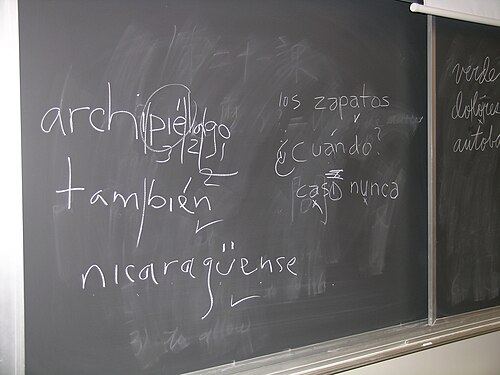 archipiélago
3 2 1
también
nicaragüense
los zapatos
¿Cuándo?
casi nunca
verde
dolores